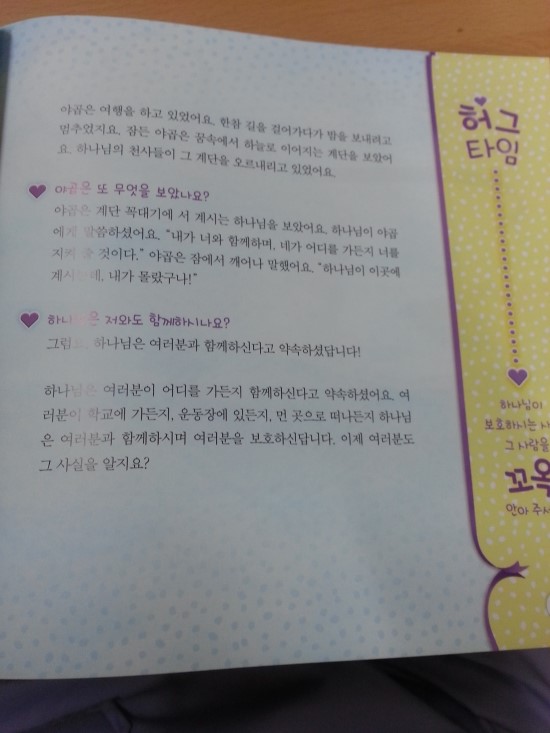 야곱은 여행을 하고 있었어요. 한참 길을 걸어가다가 밤을 보내려고
멈추었지요. 잠든 야곱은 꿈속에서 하늘로 이어지는 계단을 보았어
요. 하나님의 천사들이 그 계단을 오르내리고 있었어요.
야곱은 또 무엇을 보았나요?
야곱은 계단 꼭대기에 서 계시는 하나님을 보았어요. 하나님이 야곱
에게 말씀하셨어요. “내가 너와 함께하며, 네가 어디를 가든지 너를
지켜 줄 것이다.” 야곱은 잠에서 깨어나 말했어요. “하나님이 이곳에
내가 몰랐구나!”
하나님은 저와도 함께하시나요?
하나님은 여러분과 함께하신다고 약속하셨답니다!
하나님은 여러분이 어디를 가든지 함께하신다고 약속하셨어요. 여
러분이 학교에 가든지, 운동장에 있든지, 먼 곳으로 떠나든지 하나님
은 여러분과 함께하시며 여러분을 보호하신답니다. 이제 여러분도
그 사실을 알지요?
허그
타임
하나님이
보호하시는
그 사람을
꼬옥
안아